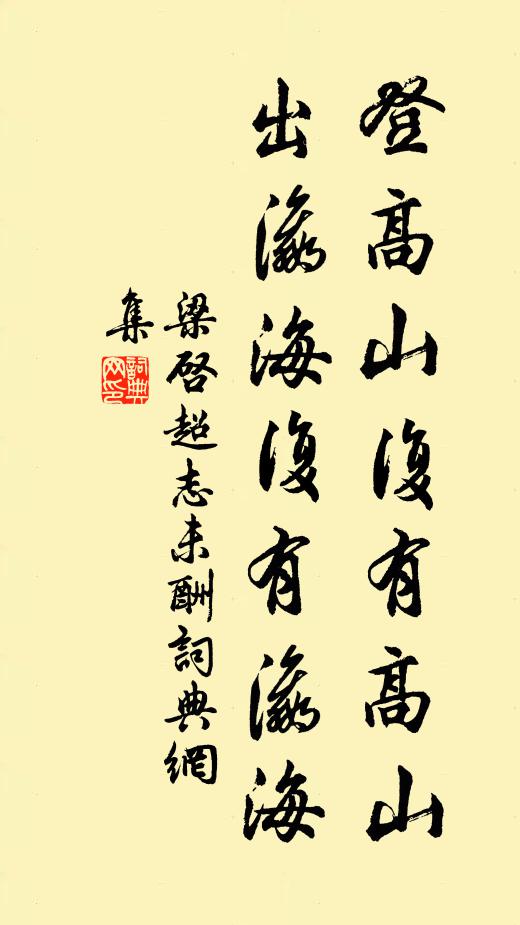 登高山復有高山
出瀛海復有瀛海
梁啓超志未酬詞典網
集
詞典
网印